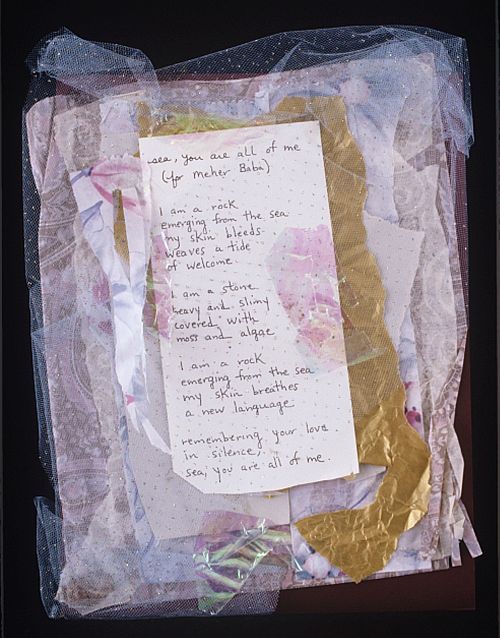 sea, you are all of me
(for Meher Baba)
I am a rock
emerging from the sea
my skin bleeds
weaves a tide
of welcome
I am a stone
heavy and slimy
covered with
moss and algae
I am a rock
emerging from the sea
my skin breathes
a new language
remembering your love
in silence,
sea, you are all of me.